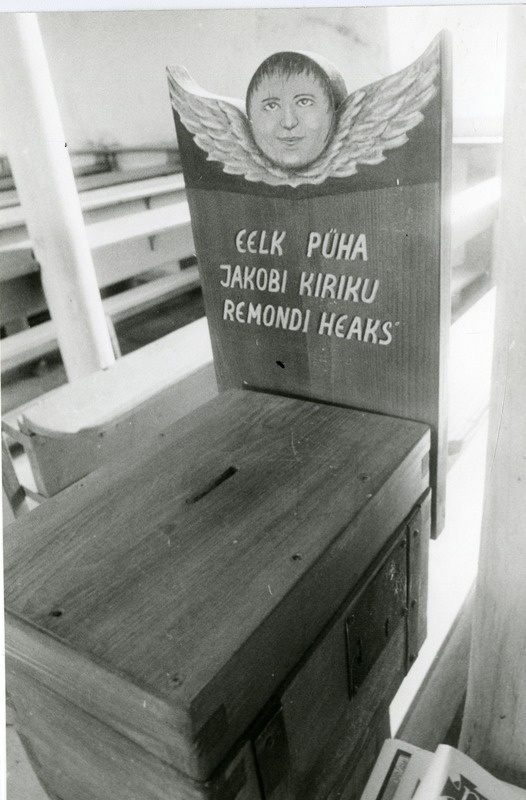 EELK PÜHA
JAKOBI KIRIKU
REMONDI HEAKS